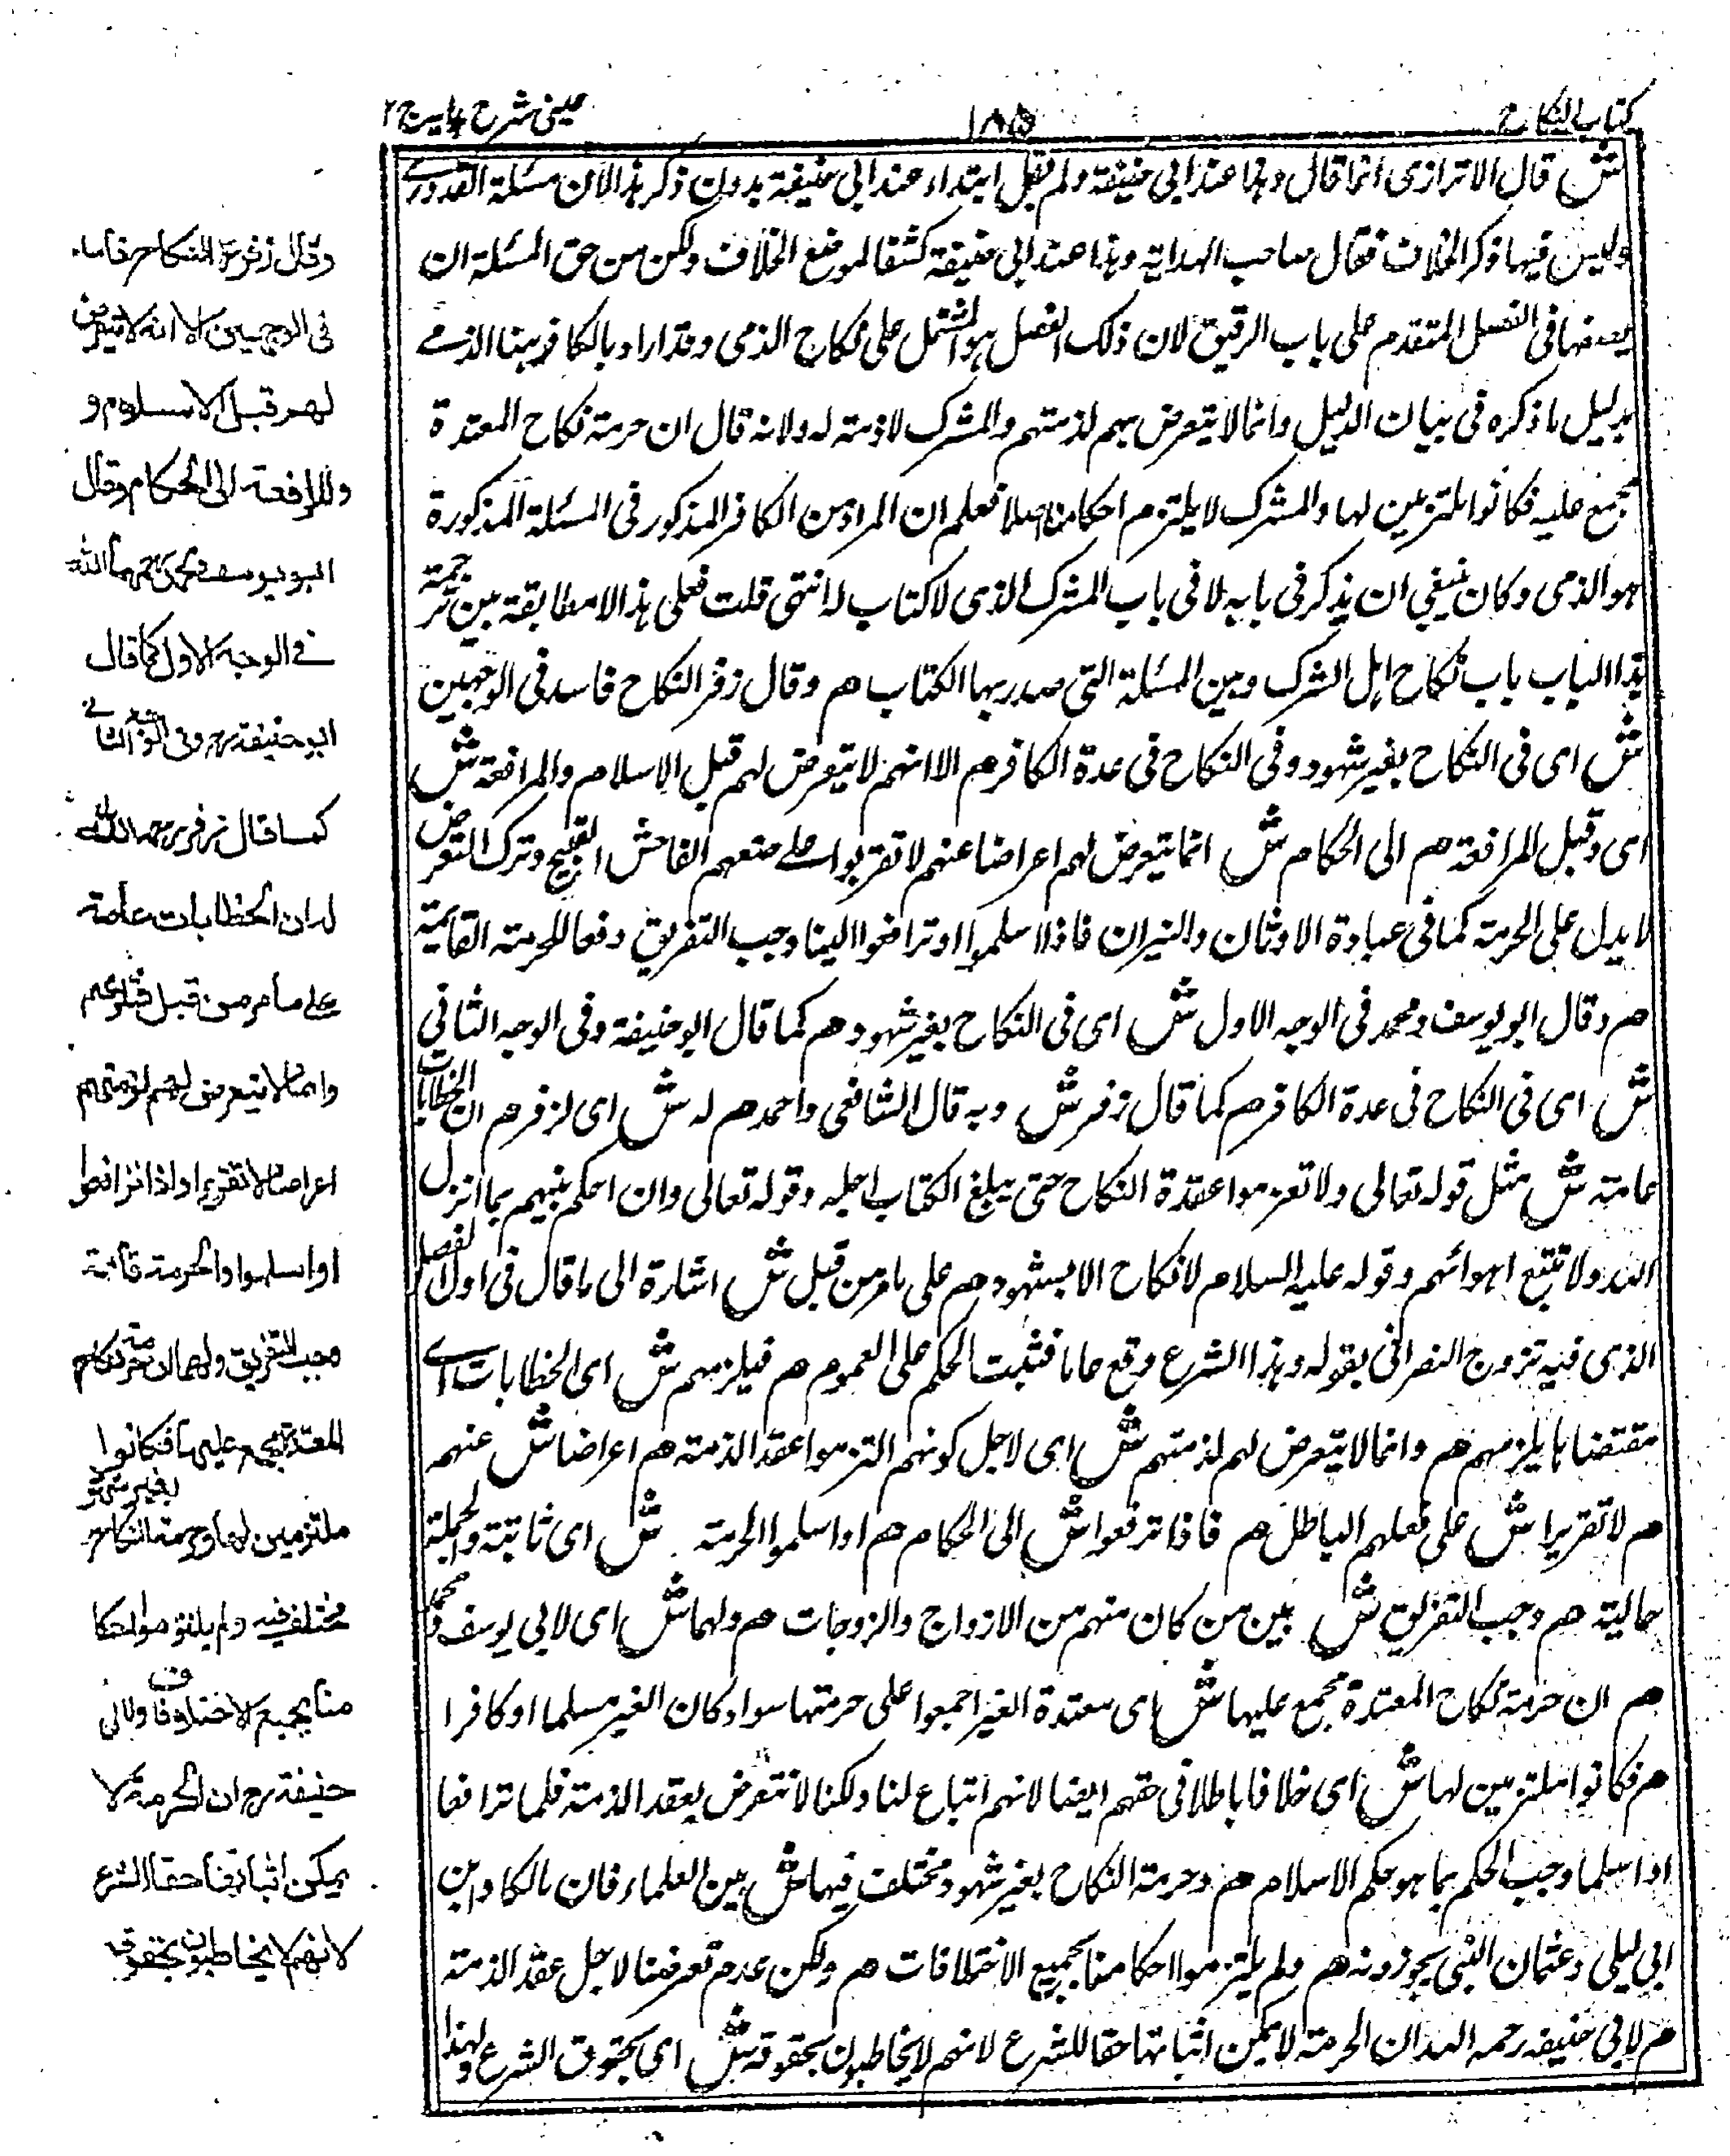 كتاب النكاح
١٨٥
عينى شرح هدايه ج ٢
ش قال الاترازى انما قال وهذا عند ابى حنيفة ولم يقل ابتداء عند ابى حنيفة بدون ذكر هذا لان مسئلة القدورے
وليس فيها ذكر الخلاف فقال صاحب الهداية وهذا عند ابى حنيفة كشفا لموضع الخلاف ولكن من حق المسئلة ان
يضعها فى الفصل المتقدم على باب الرقيق لان ذلك الفصل هو المشتمل على نكاح الذمى وقد اراد بالكافر هنا الذمے
بدليل ما ذكره فى بيان الدليل وانما لا يتعرض بهم لذمتهم والمشرك لا ذمته له ولانه قال ان حرمة نكاح المعتدة
مجمع عليه فكانوا ملتزمين لها والمشرك لا يلتزم احكامنا اصلا فعلم ان المراد من الكافر المذكور فى المسئلة المذكورة
هو الذمى وكان ينبغى ان يذكر فى بابه لا فى باب المشرك الذى لا كتاب له انتهى قلت فعلى هذا لا مطابقة بين ترجمة
هذا الباب باب نكاح اهل الشرك وبين المسئلة التى صدر بها الكتاب هم وقال زفر النكاح فاسد فى الوجهين
ش اى فى النكاح بغير شهود وفى النكاح فى عدة الكافر هم الا انهم لا يتعرض لهم قبل الاسلام والمرافعة ش
اى وقبل المرافعة هم الى الحكام ش انما يتعرض لهم اعراضا عنهم لا تقريرا على صنعهم الفاحش القبيح وترك التعرض
لا يدل على الحرمة كما فى عبادة الاوثان والنيران فاذا اسلموا او ترافعوا الينا وجب التفريق دفعا للحرمة القائمة
هم وقال ابو يوسف ومحمد فى الوجه الاول ش اى فى النكاح بغير شهود هم كما قال ابو حنيفة وفى الوجه الثانى
ش اى فى النكاح فى عدة الكافر هم كما قال زفر ش وبه قال الشافعى واحمد هم له ش اى لزفر هم ان الخطابات
عامة ش مثل قوله تعالى ولا تعزموا عقدة النكاح حتى يبلغ الكتاب اجله وقوله تعالى وان احكم بينهم بما انزل
الله ولا تتبع اهوائهم وقوله عليه السلام لا نكاح الا بشهود هم على ما مر من قبل ش اشارة الى ما قال فى اول الفصل
الذى فيه تزوج النصرانى بقوله وهذا الشرع وقع عاما فثبت الحكم على العموم هم فيلزمهم ش اى الخطابات اے
مقتضاها يلزمهم هم وانما لا يتعرض لهم لذمتهم ش اى لاجل كونهم التزموا عقد الذمة هم اعراضا ش عنهم
هم لا تقريرا ش على فعلهم الباطل هم فاذا ترفعوا ش الى الحكام هم او اسلموا الحرمة ش اى ثابتة والجملة
حالية هم وجب التفريق ش بين من كان منهم من الازواج والزوجات هم ولهما ش اى لابى يوسف ومحمد
هم ان حرمة نكاح المعتدة مجمع عليها ش اى معتدة الغير اجمعوا على حرمتها سواء كان الغير مسلما او كافرا
هم فكانوا ملتزمين لها ش اى خلافا باطلا فى حقهم ايضا لانهم اتباع لنا ولكنا لا نتعرض بعقد الذمة فلما ترافعا
او اسلما وجب الحكم بما هو حكم الاسلام هم وحرمة النكاح بغير شهود مختلف فيها ش بين العلماء فان مالكا وابن
ابى ليلى وعثمان البتى يجوزونه هم ولم يلتزموا احكامنا بجميع الاختلافات هم ولكن عدم تعرضنا لاجل عقد الذمة
هم لابى حنيفه رحمه الله ان الحرمة لا يمكن اثباتها حقا للشرع لانهم لا يخاطبون بحقوقه ش اى بحقوق الشرع ولهذا
وقال زفر رح النكاح فاسد
فى الوجهين الا انه لا يتعرض
لهم قبل الاسلام و
والمرافعة الى الحكام وقال
ابو يوسف ومحمد رحمهما الله
فے الوجه الاول كما قال
ابو حنيفة رح وفى الوجه الثانے
كما قال زفر رحمه الله
له ان الخطابات عامة
على ما مر من قبل فتلزمهم
وانما لا يتعرض لهم لذمتهم
اعراضا لا تقريرا واذا ترافعوا
او اسلموا والحرمة قائمة
وجب التفريق ولهما ان حرمة نكاح
المعتدة مجمع عليها فكانوا
ملتزمين لها وحرمة النكاح بغير شهود
مختلف فيه ولم يلتزموا احكا
منا بجميع الاختلافات ولابى
حنيفة رح ان الحرمة لا
يمكن اثباتها حقا للشرع
لانهم لا يخاطبون بحقوقه